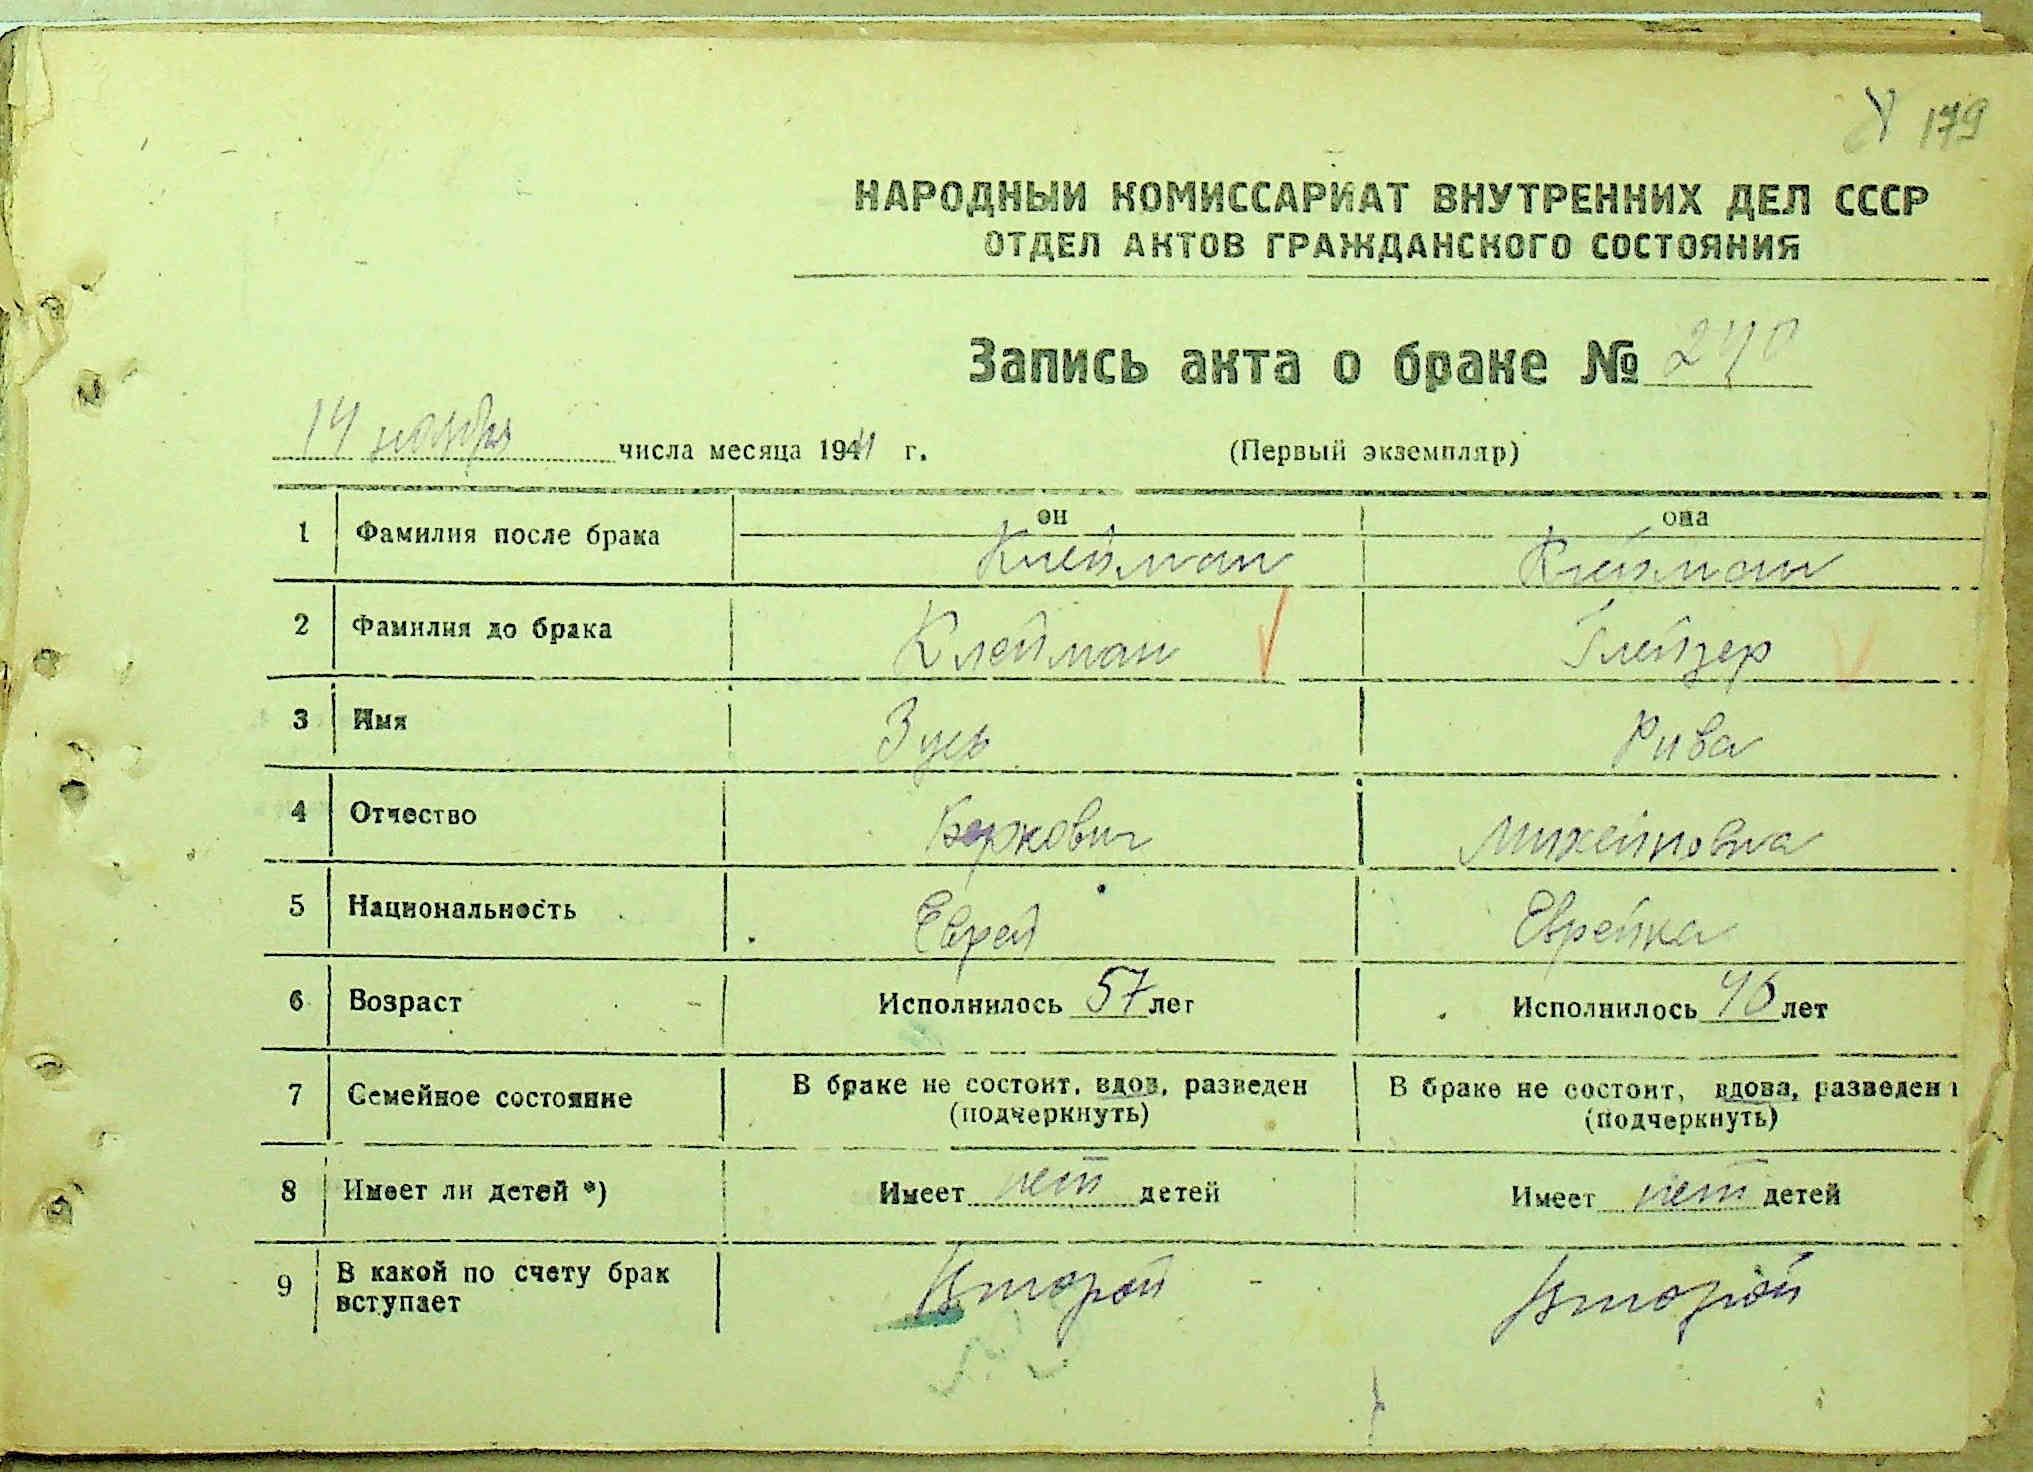 179
НАРОДНЫЙ КОМИССАРИАТ ВНУТРЕННИХ ДЕЛ СССР
ОТДЕЛ АКТОВ ГРАЖДАНСКОГО СОСТОЯНИЯ
Запись акта о браке № 240
14 ноября числа месяца 1944 г. (Первый экземпляр)
он она
1 Фамилия после брака Клейман Клейман
2 Фамилия до брака Клейман Глейзер
3 Имя Зусь Рива
4 Отчество Беркович
5 Национальность Еврей Еврейка
6 Возраст Исполнилось 57 лет Исполнилось 46 лет
7 Семейное состояние В браке не состоит, вдов, разведен В браке не состоит, вдова, разведен
(подчеркнуть) (подчеркнуть)
8 Имеет ли детей *) Имеет нет детей Имеет нет детей
9 В какой по счету брак
вступает Второй Второй